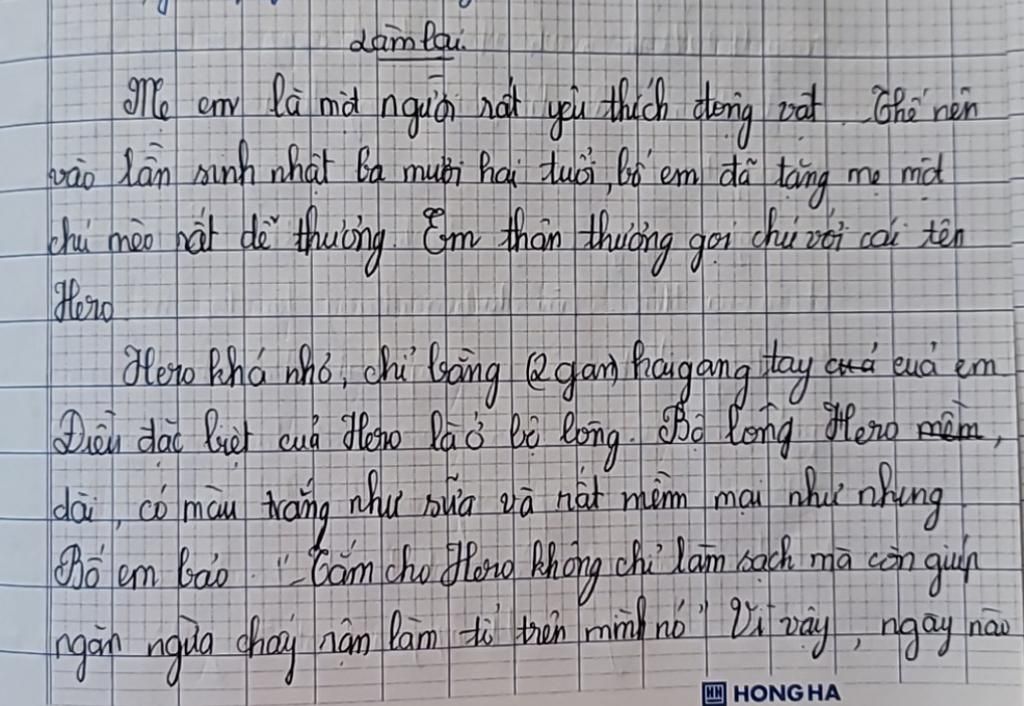 Làm lại.
Mẹ em là một người rất yêu thích động vật. Thế nên
vào lần sinh nhật ba mươi hai tuổi, bố em đã tặng mẹ một
chú mèo rất dễ thương. Em thân thương gọi chú với cái tên
Hero
Hero khá nhỏ, chỉ bằng (2 gan) hai gang tay của em
Điều đặc biệt của Hero là ở bộ lông. Bộ lông Hero mềm,
dài, có màu trắng như sữa và rất mềm mại như nhung
Bố em bảo: "Tắm cho Hero không chỉ làm sạch mà còn giúp
ngăn ngừa chấy rận làm tổ trên mình nó" Vì vậy, ngày nào
HH HONG HA